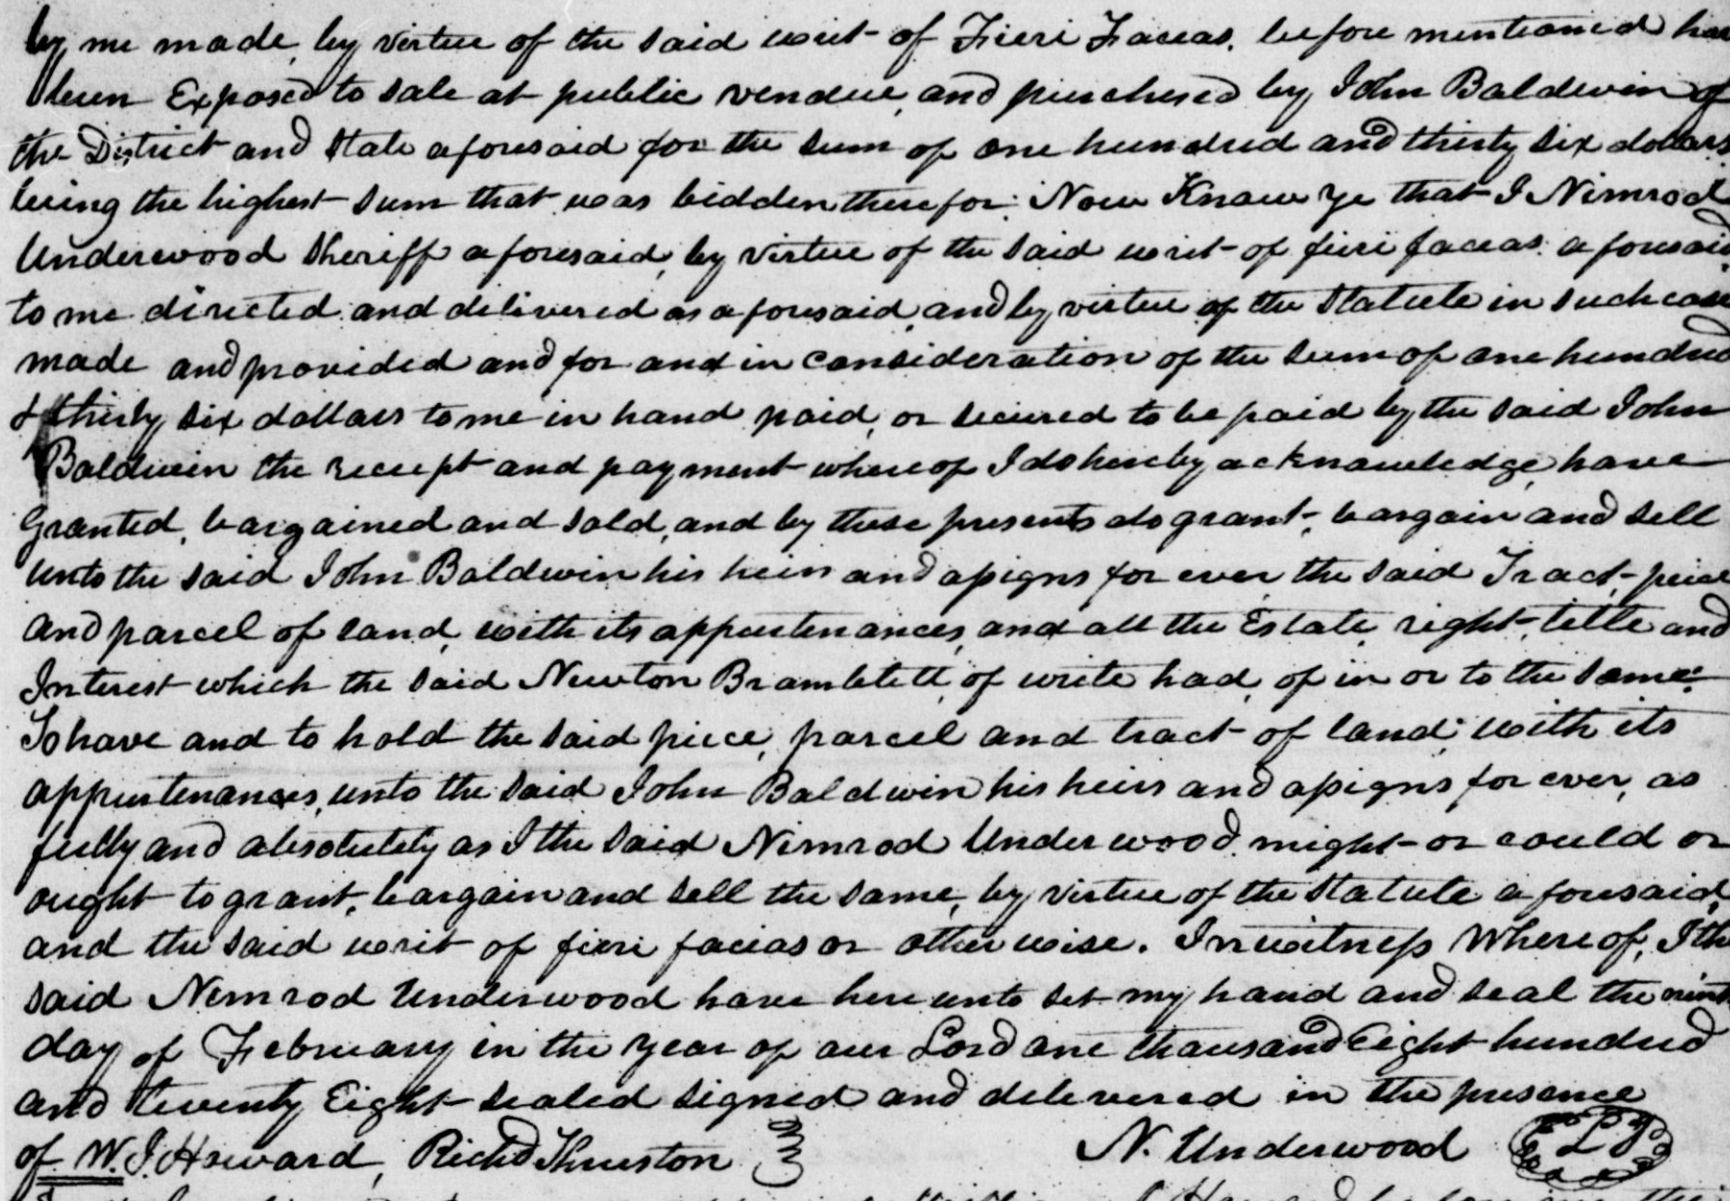 by me made, by virtue of the said writ of Fieri Facias, before mentioned has
been Exposed to sale at public vendue, and purchased by John Baldwin of
the District and State aforesaid for the sum of one hundred and thirty six dollars,
being the highest sum that was bidden therefor: Now Know Ye that I Nimrod
Underwood Sheriff aforesaid, by virtue of the said writ of fieri facias aforesaid,
to me directed and delivered as aforesaid, and by virtue of the Statute in such case
made and provided and for and in consideration of the sum of one hundred
& thirty six dollars to me in hand paid, or secured to be paid by the said John
Baldwin the receipt and payment whereof I do hereby acknowledge, have
Granted, bargained and sold, and by these presents do grant, bargain and sell
unto the said John Baldwin his heirs and assigns for ever, the said Tract, piece
and parcel of land, with its appurtenances, and all the Estate, right, title and
Interest which the said Newton Bramblett, of write had, of in or to the same.
To have and to hold the said piece, parcel and tract of land, with its
appurtenances, unto the said John Baldwin his heirs and assigns for ever, as
fully and absolutely as I the said Nimrod Underwood might or could or
ought to grant, bargain and sell the same, by virtue of the Statute aforesaid,
and the said writ of fieri facias or otherwise. In witness Whereof, I the
said Nimrod Underwood have hereunto set my hand and seal the nint
day of February in the year of our Lord one thousand Eight hundred
and twenty Eight sealed signed and delivered in the presence
of W. J. Howard, Richd Thruston N. Underwood LS